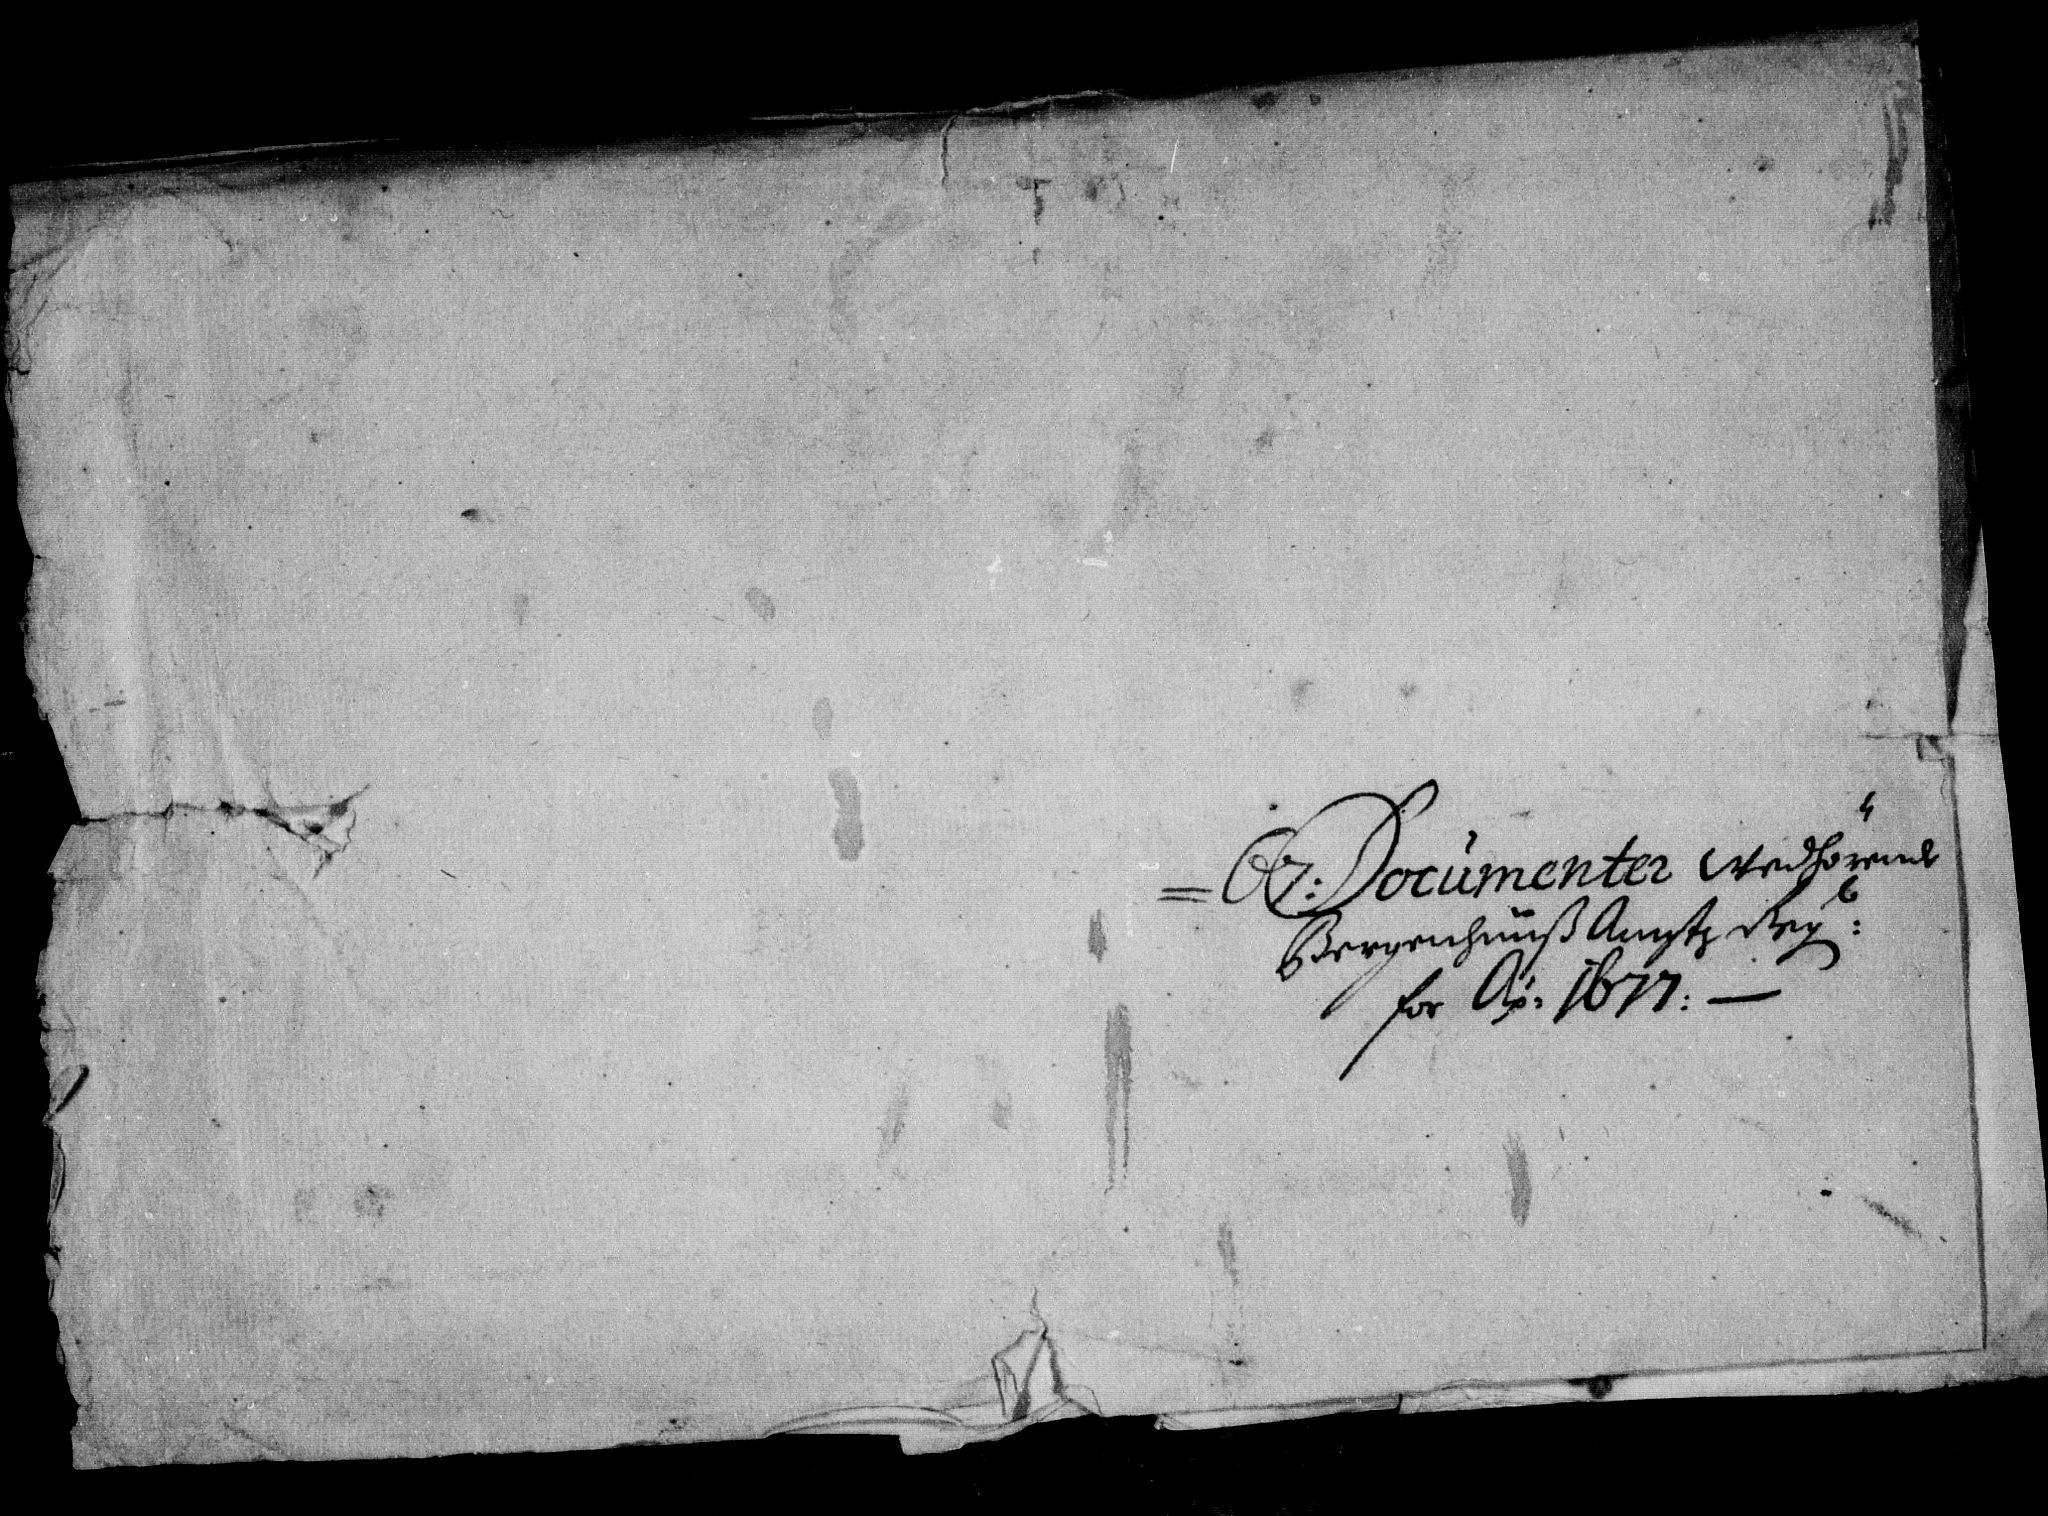 67: Documenter vedhørende
Bergenhuuß Ampts Reg:
for Ao: 1677: —